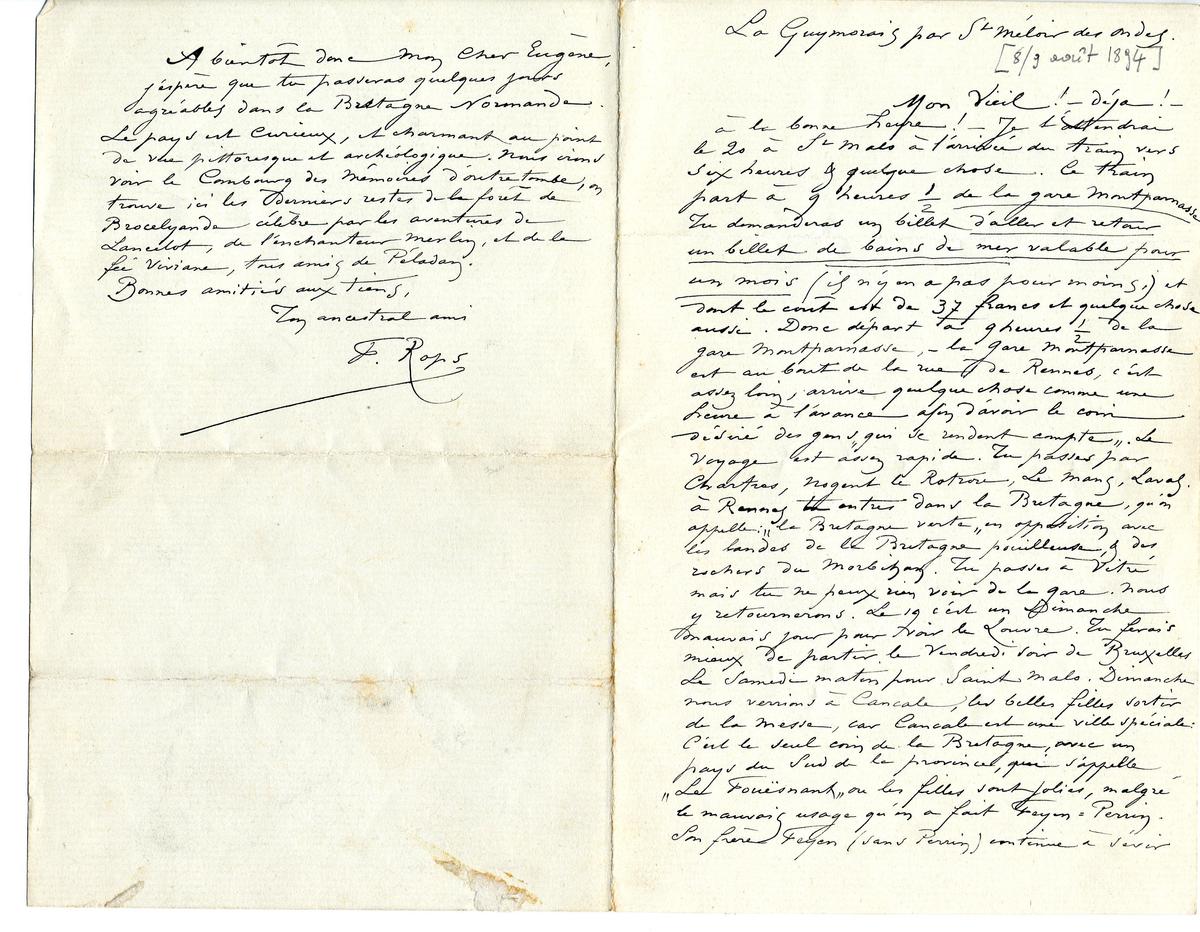 La Guymorais par St Méloir des ondes.
[8/9 août 1894]
Mon Vieil ! – déja ! –
à la bonne heure ! – Je t'attendrai
le 20 à St Malo à l'arrivée du train vers
six heures & quelque chose. Ce train
part à 9 heures ½ de la gare Montparnasse
Tu demanderas un billet d'aller et retour
un billet de bains de mer valable pour
un mois (il n'y en a pas pour moins,) et
dont le coût est de 37 francs et quelque chose
aussi. Donc départ à 9 heures ½ de la
gare Montparnasse, – la gare Montparnasse
est au bout de la rue de Rennes, c'est
assez loin, arrive quelque chose comme une
heure à l'avance afin d'avoir le coin
désiré des gens „qui se rendent compte„. Le
voyage est assez rapide. Tu passes par
Chartres, Nogent le Rotrou, Le Mans, Laval.
à Rennes tu entres dans la Bretagne, qu'on
appelle: „la Bretagne verte„ en opposition avec
les landes de la Bretagne pouilleuse, & des
rochers du Morbihan. Tu passes à Vitré
mais tu ne peux rien voir de la gare. Nous
y retournerons. Le 19 c'est un Dimanche
mauvais jour pour voir le Louvre. Tu ferais
mieux de partir le Vendredi soir de Bruxelles
Le Samedi matin pour Saint Malo. Dimanche
nous verrions à Cancale, les belles filles sortir
de la messe, car Cancale est une ville spéciale:
C'est le seul coin de la Bretagne, avec un
pays du Sud de la province, qui s'appelle
„Le Fouësnant„ ou les filles sont jolies, malgré
le mauvais usage qu'en a fait Feyen=Perrin.
Son frère Feyen (sans Perrin) continue à sévir
A bientôt donc Mon Cher Eugène,
j'espère que tu passeras quelques jours
agréables dans la Bretagne Normande.
Le pays est Curieux, et charmant au point
de vue pittoresque et archéologique. Nous irons
voir le Combourg des Mémoires d'outretombe, on
trouve ici les Derniers restes de la forêt de
Brocelyande célèbre par les aventures de
Lancelot, de l'enchanteur Merlin, et de la
fée Viviane, tous amis de Peladan.
Bonnes amitiés aux tiens,
Ton ancestral ami
F. Rops